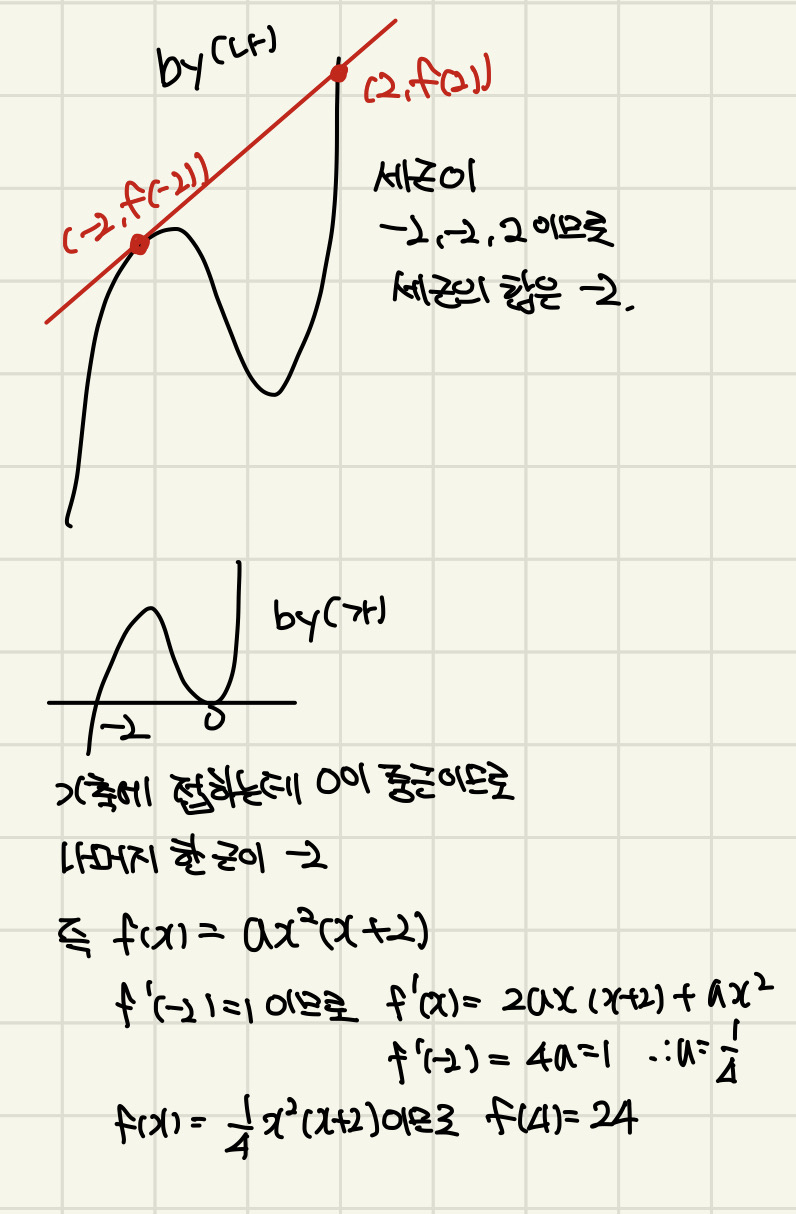 by (나)
(2, f(2))
(-2, f(-2))
세근이
-2, -2, 2 이므로
세근의 합은 -2.
by (가)
-2 0
x축에 접하는데 0이 중근이므로
나머지 한 근이 -2
즉 f(x) = ax²(x+2)
f'(-2)=1 이므로 f'(x) = 2ax(x+2) + ax²
f'(-2) = 4a=1 ∴a=1/4
f(x) = 1/4 x²(x+2)이므로 f(4)=24